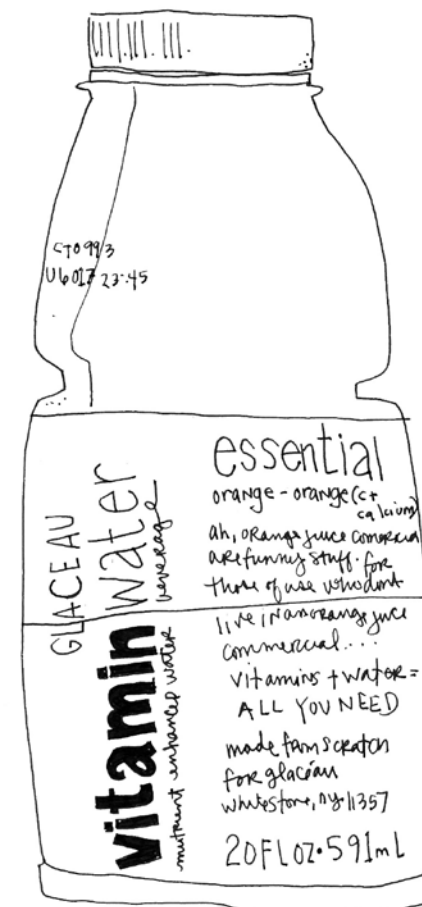 CT0993
U6017 23:45
GLACEAU
vitamin water
nutrient enhanced water beverage
essential
orange - orange (c +
calcium)
ah, orange juice comercial
are funny stuff. for
those of use who dont
live in an orange juce
commercial....
vitamins + water =
ALL YOU NEED
made fam scratch
for glacéau
whitestone, ny. 11357
20 FL OZ • 591mL